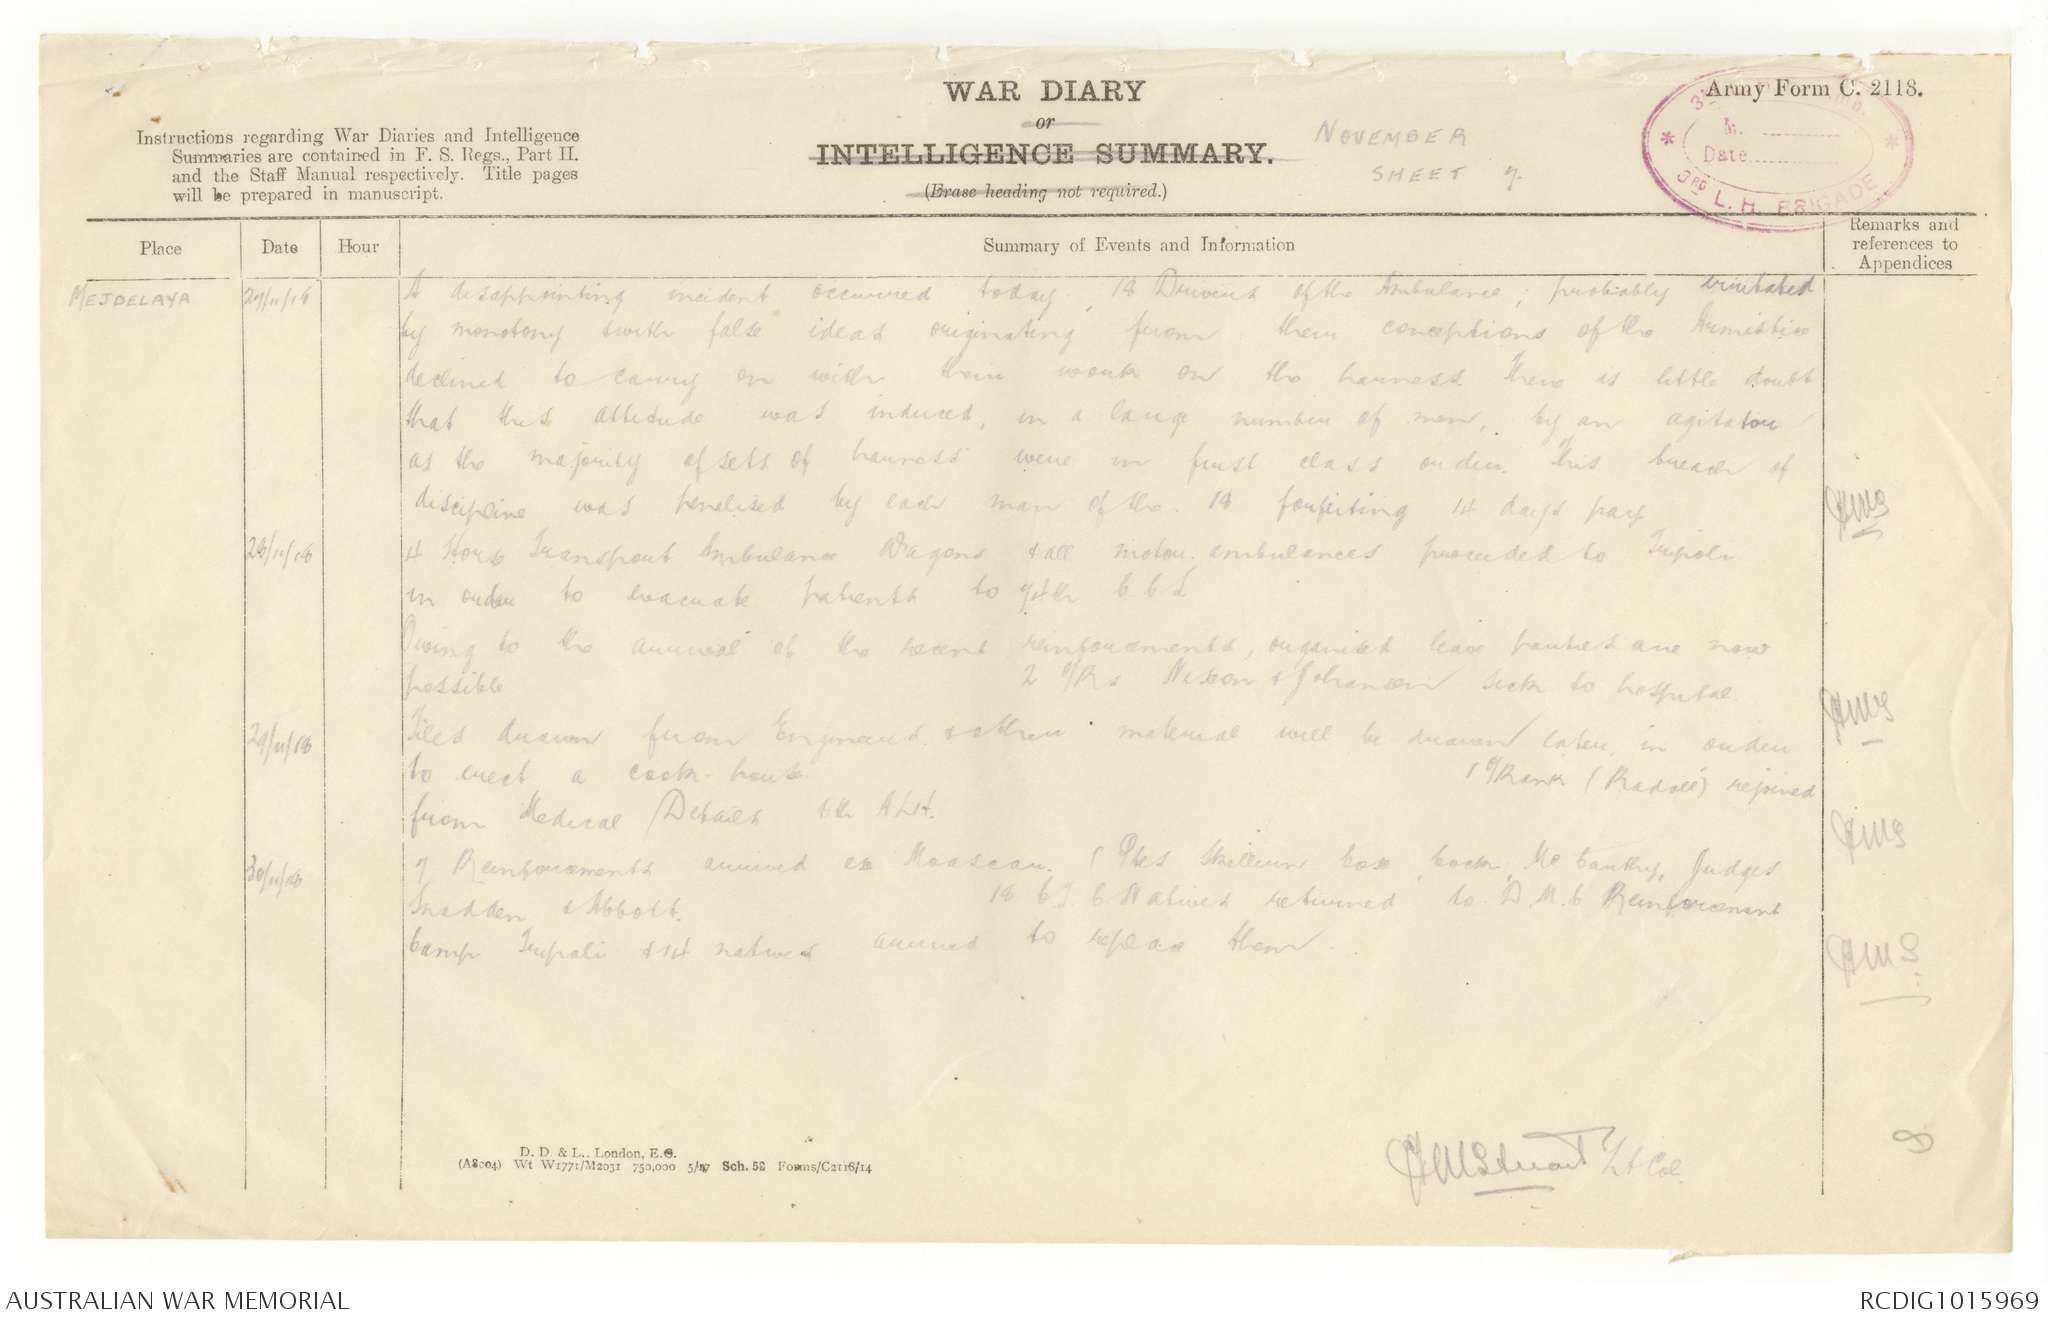 WAR DIARY
or
INTELLIGENCE SUMMARY.
(Erase heading not required.)
Army Form C. 2118.
Instructions regarding War Diaries and Intelligence
Summaries are contained in F. S. Regs., Part II.
and the Staff Manual respectively. Title pages
will be prepared in manuscript.
NOVEMBER
SHEET 7.
Date
3RD L. H. BRIGADE
Place
Date
Hour
Summary of Events and Information
Remarks and
references to
Appendices
MEJDELAYA
27/11/18
A disappointing incident occurred today. 18 Drivers of the Ambulance, probably irritated
by monotony & with false ideas originating from their conceptions of the Armistice
declined to carry on with their work on the harness. There is little doubt
that this attitude was induced, in a large number of men, by an agitator
as the majority of sets of harness were in first class order. This breach of
discipline was penalised by each man of the 18 forfeiting 14 days pay
HMS
28/11/18
4 Horse Transport Ambulance Wagons & all motor ambulances proceeded to Tripoli
in order to evacuate patients to 74th C C S
Owing to the arrival of the recent reinforcements, organised leave parties are now
possible 2 O/Rs Nixon & Johansen sick to hospital.
HMS
29/11/18
Tiles drawn from Engineers & other material will be drawn later in order
to erect a cook-house. 1 O/Rank (Radall) rejoined
from Medical Details 8th ALH.
HMS
30/11/18
7 Reinforcements arrived ex Moascar. (Ptes Cox, Cock, McCarthy, Judges
Snadden & Abbott. 18 C.T.C Natives returned to D.M.C Reinforcement
Camp Tripoli & 14 natives arrived to replace them.
HMS
HMStuart Lt Col.
D. D. & L., London, E.C.
(A8004) Wt W1771/M2031 750,000 5/17 Sch. 52 Forms/C2118/14
AUSTRALIAN WAR MEMORIAL
RCDIG1015969